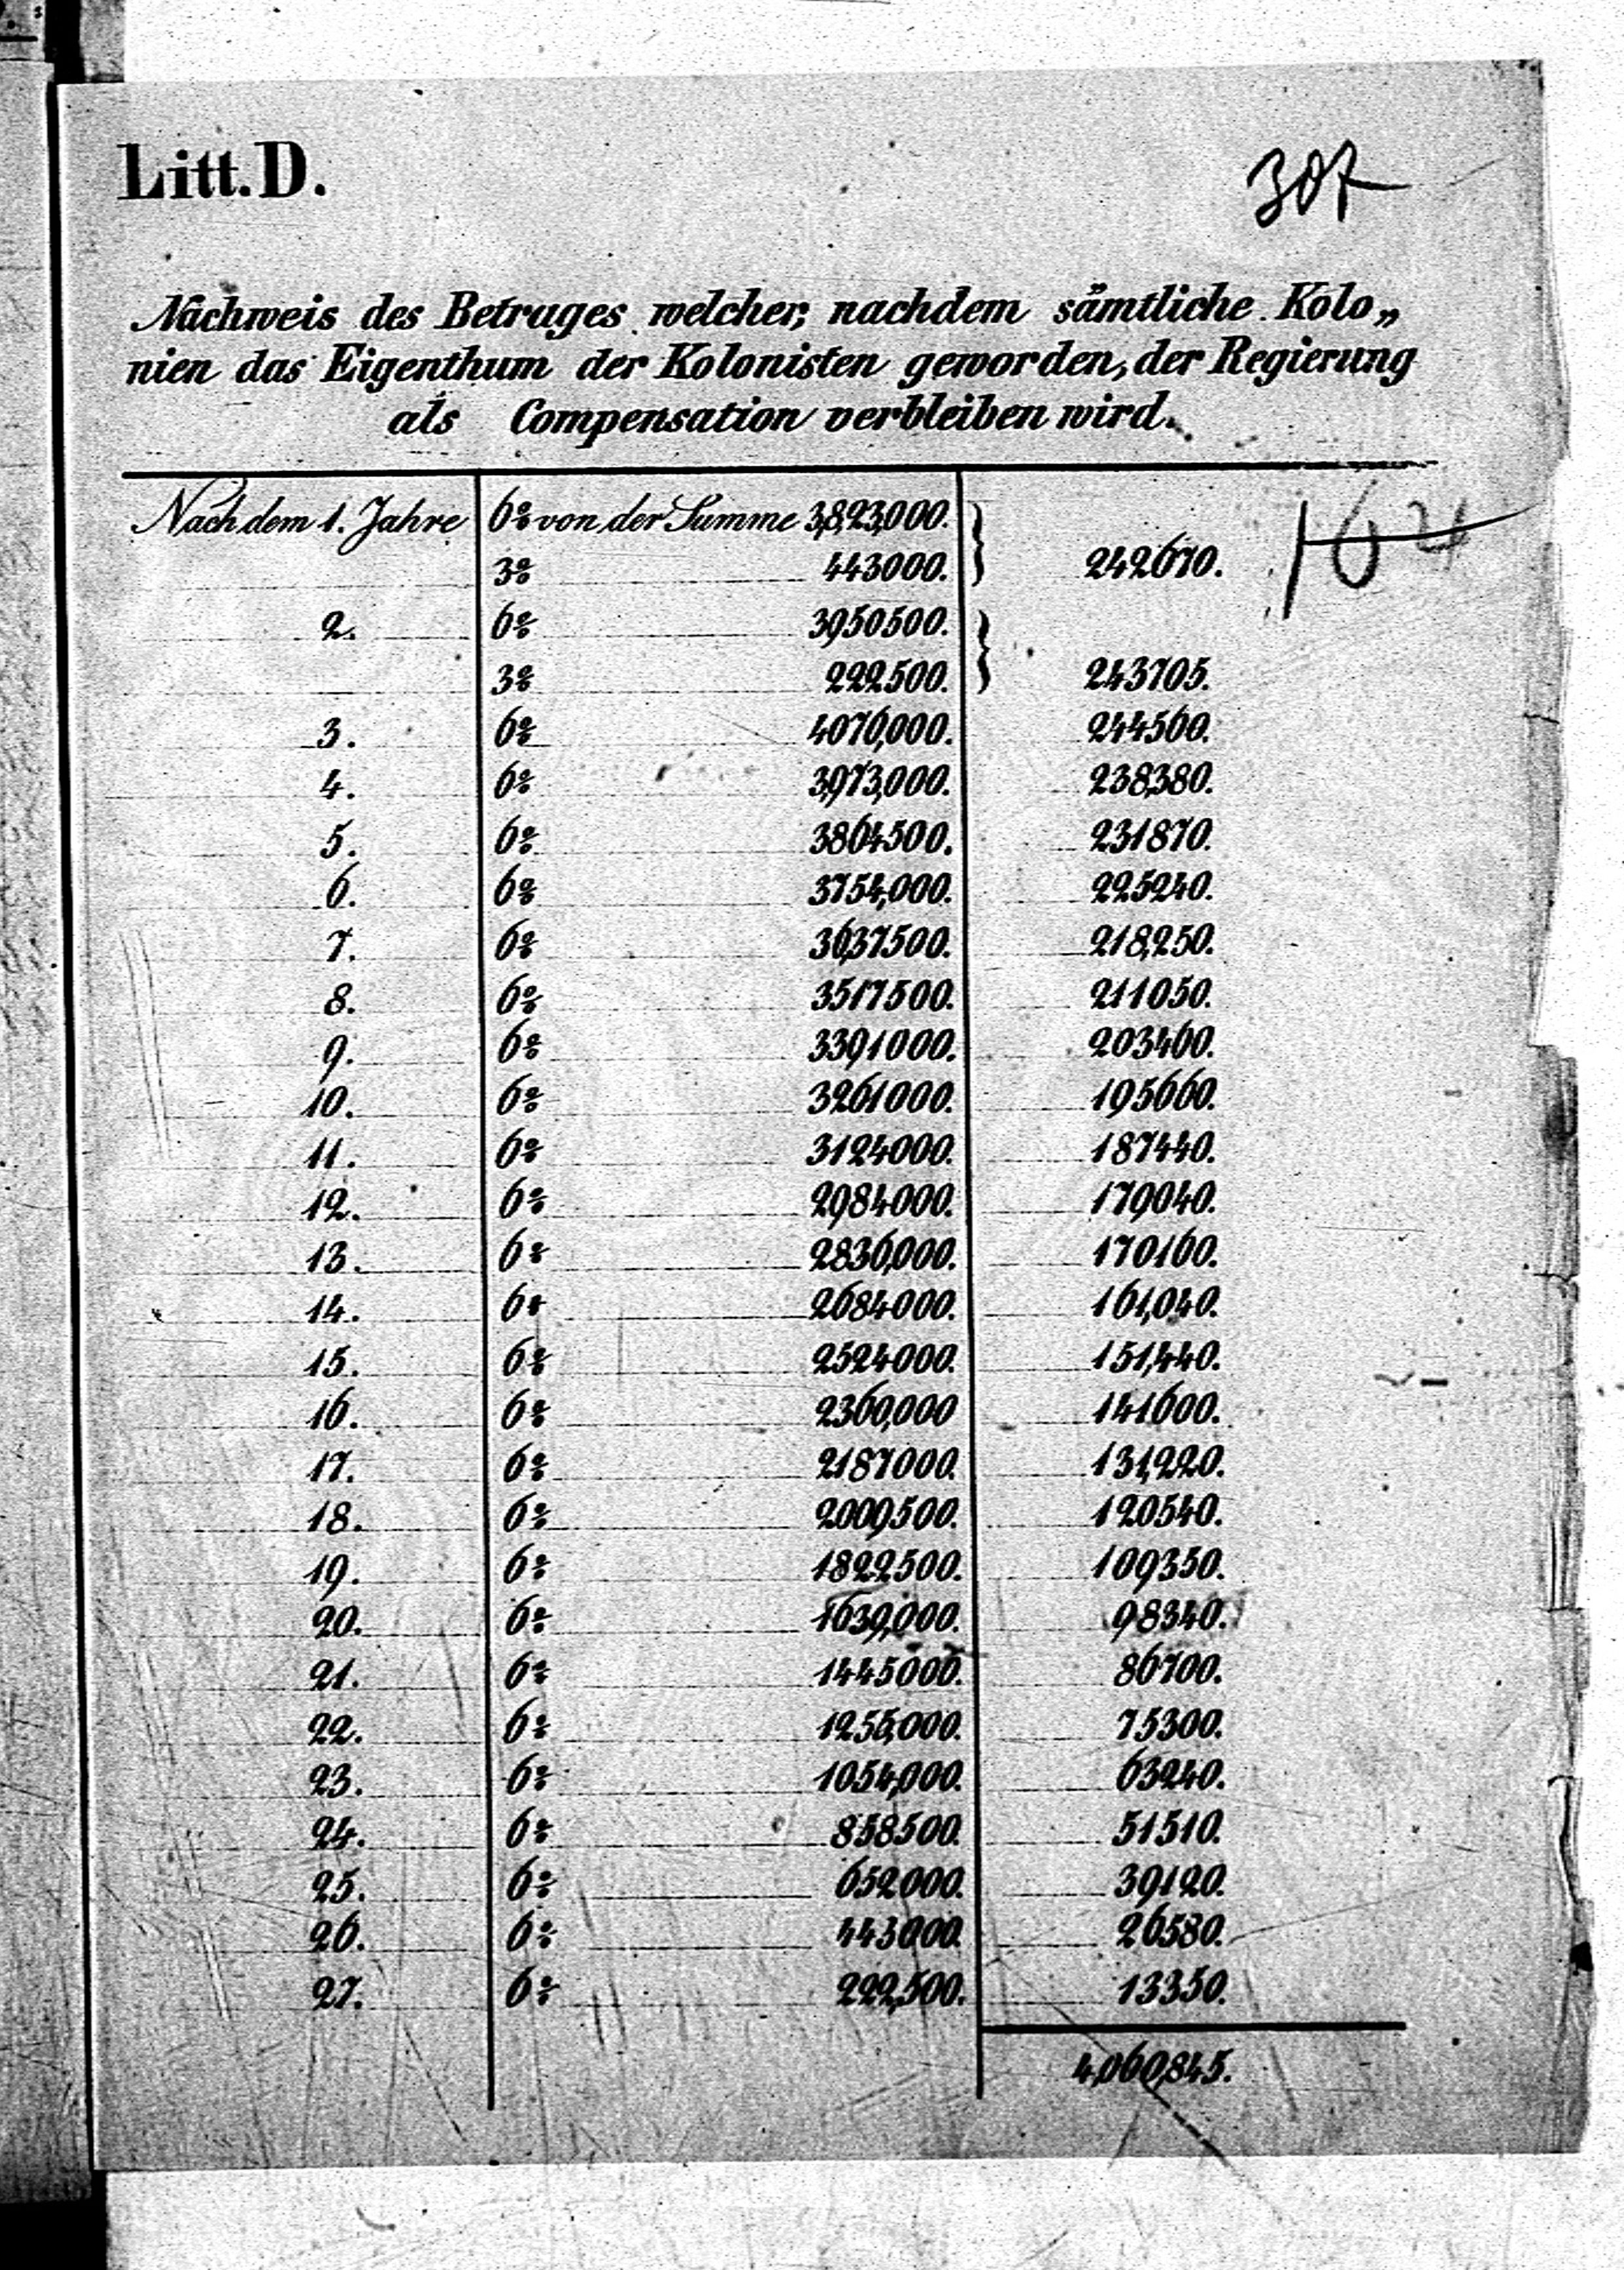 Litt. D.
307
Nachweis des Betrages welcher, nachdem sämtliche Kolo„
nien das Eigenthum der Kolonisten geworden, der Regierung
als Compensation verbleiben wird.
Nach dem 1. Jahre 6% von der Summe 3,823,000.
3% 443000. 242670.
2. 6% 3950500.
3% 222500. 243705.
3. 6% 4076,000. 244560.
4. 6% 3,973,000. 238,380.
5. 6% 3864500. 231870.
6. 6% 3754,000. 225240.
7. 6% 3637500. 218,250.
8. 6% 3517500. 211050.
9. 6% 3391000. 203460.
10. 6% 3261000. 195660.
11. 6% 3124000. 187440.
12. 6% 2984000. 179040.
13. 6% 2836,000. 170160.
14. 6% 2684000. 161,040.
15. 6% 2524000. 151,440.
16. 6% 2360,000 141600.
17. 6% 2187000. 131,220.
18. 6% 2009500. 120540.
19. 6% 1822500. 109350.
20. 6% 1639,000. 98340.
21. 6% 1445000. 86700.
22. 6% 1255,000. 75300.
23. 6% 1054,000. 63240.
24. 6% 858500. 51510.
25. 6% 652000. 39120.
26. 6% 443000. 26580.
27. 6% 222,500. 13350.
4,060,845.